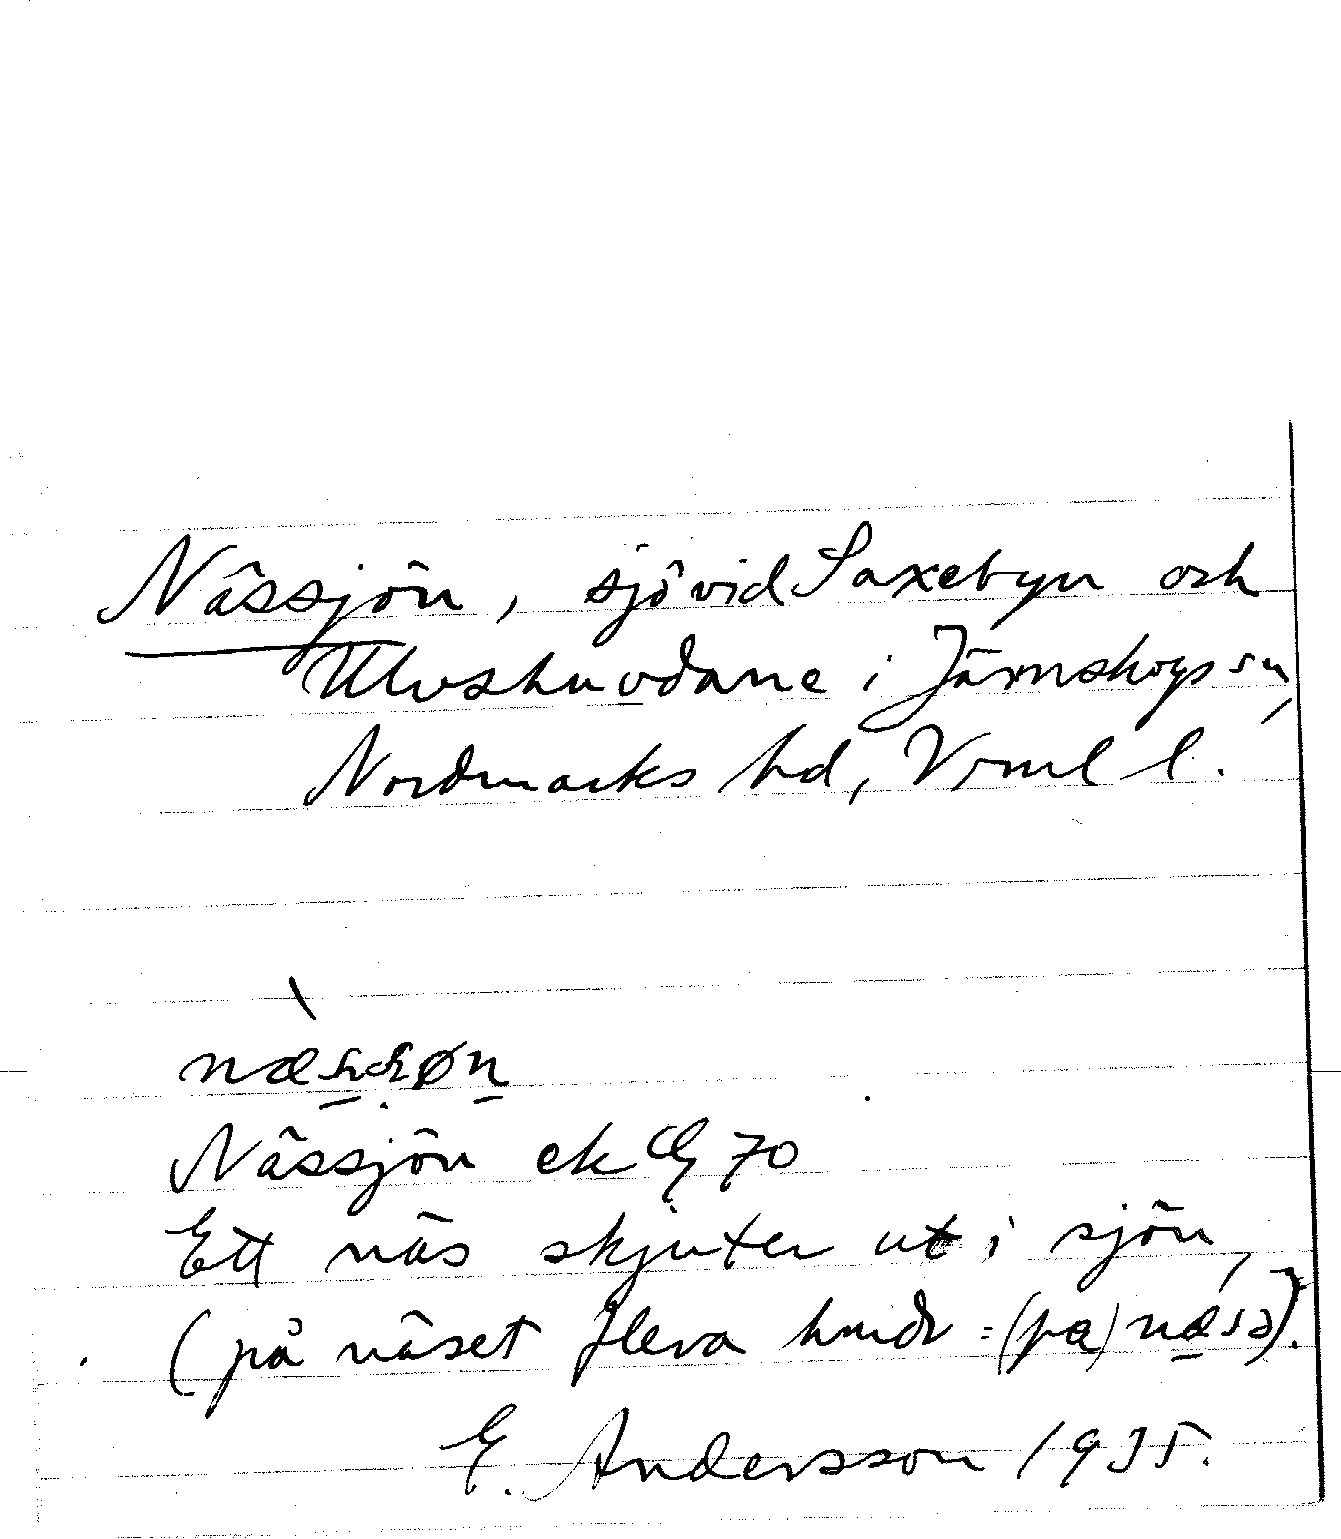 Nässjön, sjö vid Saxebyn och
Ulvshuvdane i Järnskogs sn,
Nordmarks hd, Vrml l.
Nässjön ek G 70
Ett näs skjuter ut i sjön,
(på näset flera hmdr = (pa) næsə).
E. Andersson 1935.